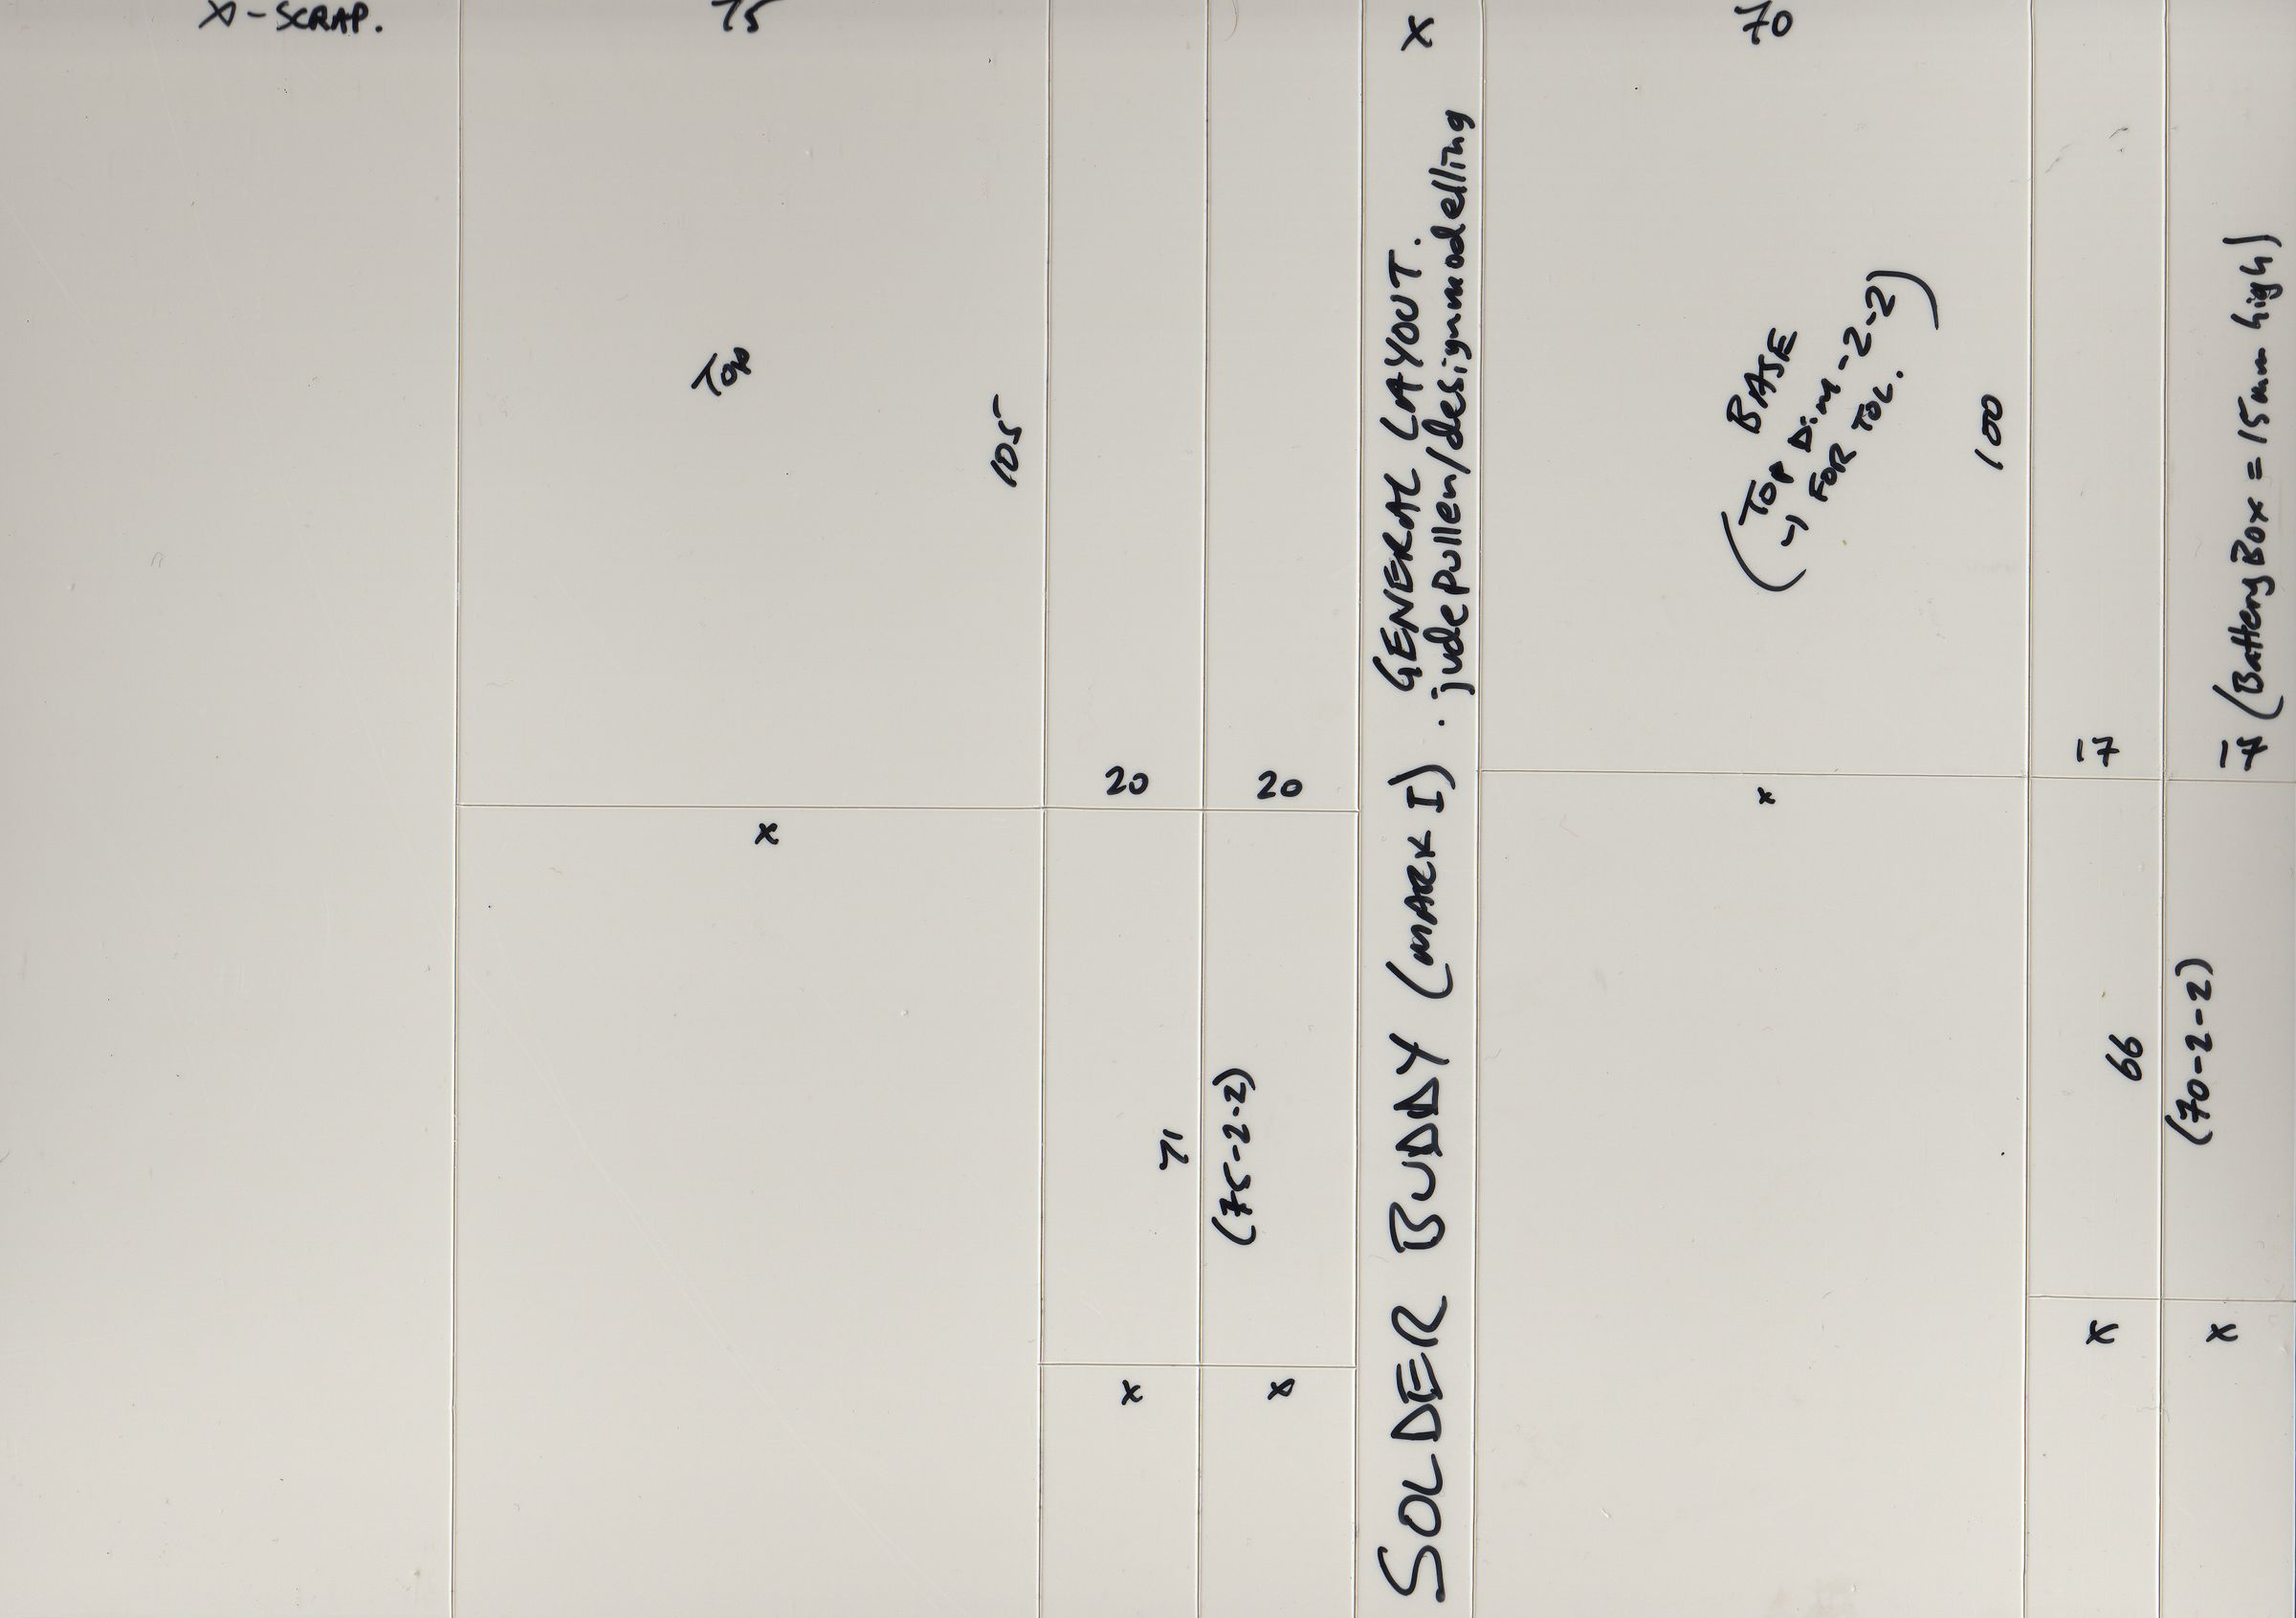 x - SCRAP.
75
Top
105
x
20
20
71
(75-2-2)
x
x
SOLDER BUDDY (MARK I). GENERAL LAYOUT.
judepullen/designmodelling
x
70
BASE
(TOP Dim -2-2
→ FOR TOL.)
100
x
17
17 (Battery Box = 15mm high)
66
(70-2-2)
x
x